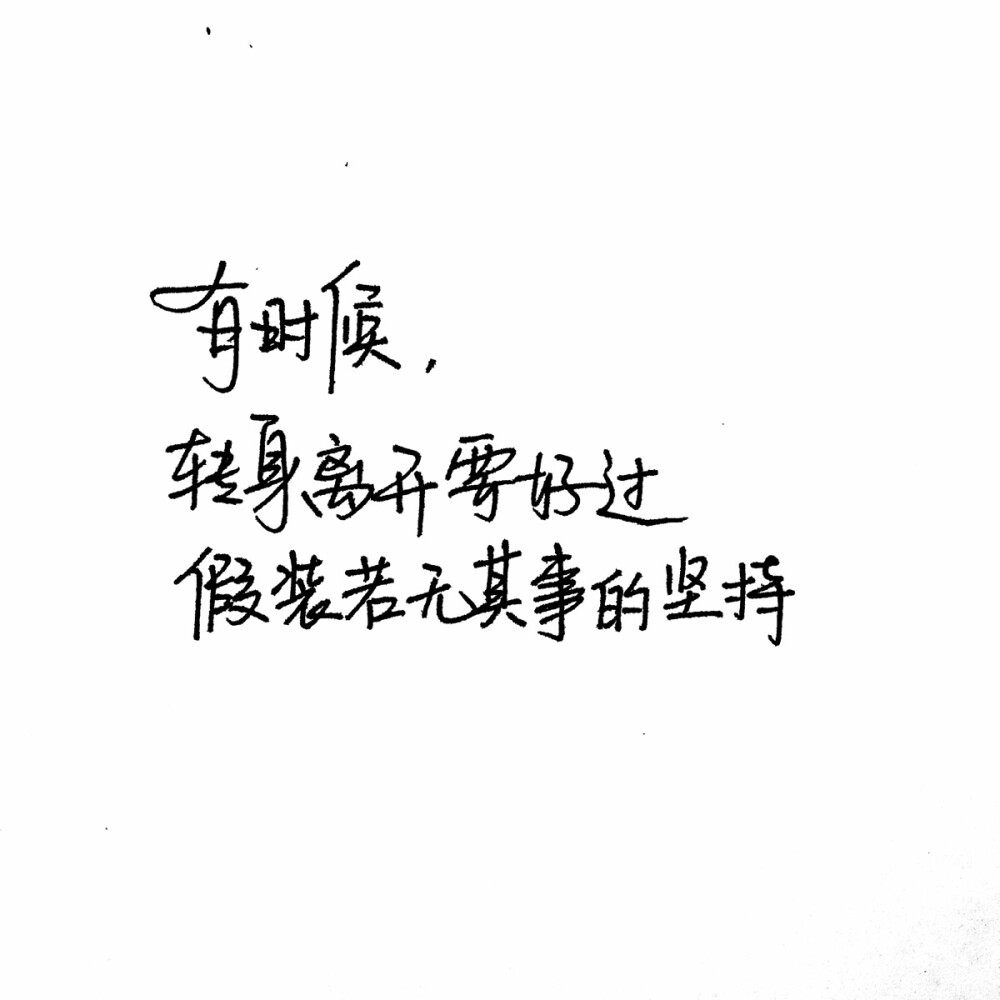 有时候,
转身离开要好过
假装若无其事的坚持